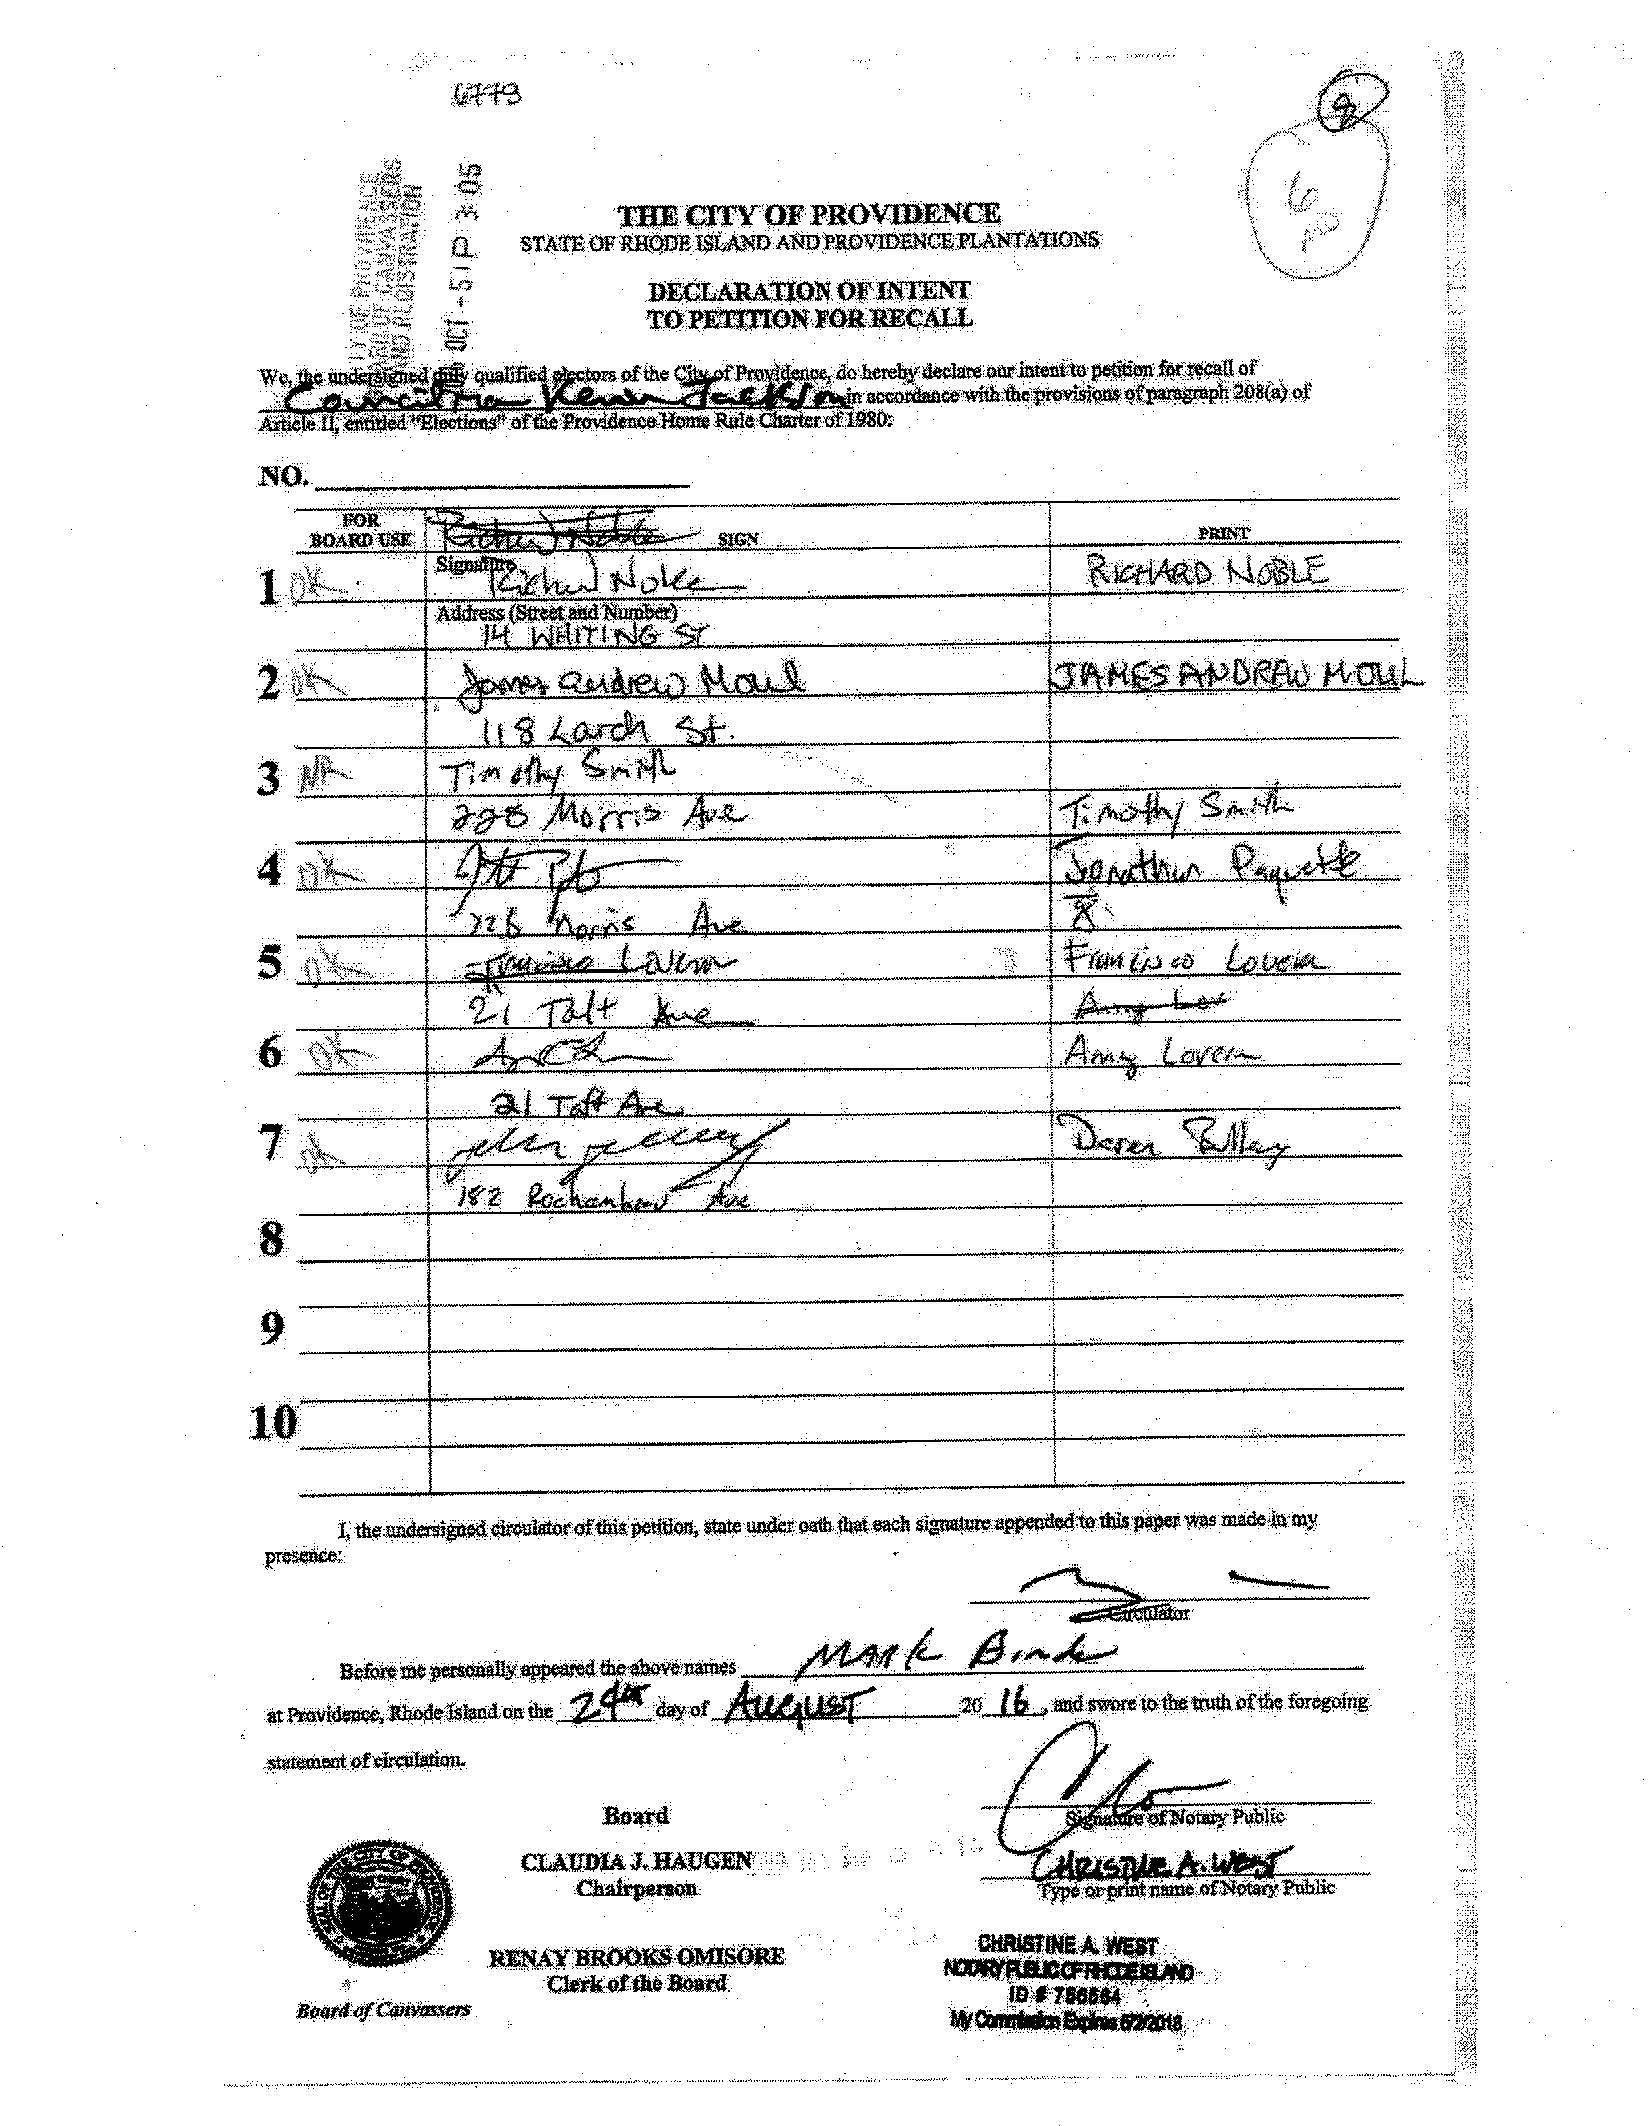 6773
8
6
OCT -5 P 3:05
THE CITY OF PROVIDENCE
STATE OF RHODE ISLAND AND PROVIDENCE PLANTATIONS
DECLARATION OF INTENT
TO PETITION FOR RECALL
We, the undersigned duly qualified electors of the City of Providence, do hereby declare our intent to petition for recall of
Councilman Kevin Jackson in accordance with the provisions of paragraph 208(a) of
Article II, entitled "Elections" of the Providence Home Rule Charter of 1980:
NO.
FOR
BOARD USE
Richard Noble
SIGN
PRINT
1 OK
Signature
Richard Noble
RICHARD NOBLE
Address (Street and Number)
14 WHITING ST
2 OK
James Andrew Moul
JAMES ANDREW MOUL
118 Larch St.
3 NR
Timothy Smith
228 Morris Ave
Timothy Smith
4 OK
Jonathan Paquette
228 Morris Ave
8
5 OK
Francisco Lovera
Francisco Lovera
21 Taft Ave
6 OK
Amy Lovera
21 Taft Ave
7 OK
182 Rochambeau Ave
8
9
10
I, the undersigned circulator of this petition, state under oath that each signature appended to this paper was made in my
presence:
Circulator
Before me personally appeared the above names Mark Binder
at Providence, Rhode Island on the 24th day of AUGUST 20 16, and swore to the truth of the foregoing
statement of circulation.
Signature of Notary Public
Board
CLAUDIA J. HAUGEN
Chairperson
CHRISTINE A. WEST
Type or print name of Notary Public
RENAY BROOKS OMISORE
Clerk of the Board
Board of Canvassers
CHRISTINE A. WEST
NOTARY PUBLIC OF RHODE ISLAND
ID # 756564
My Commission Expires 6/2/2018